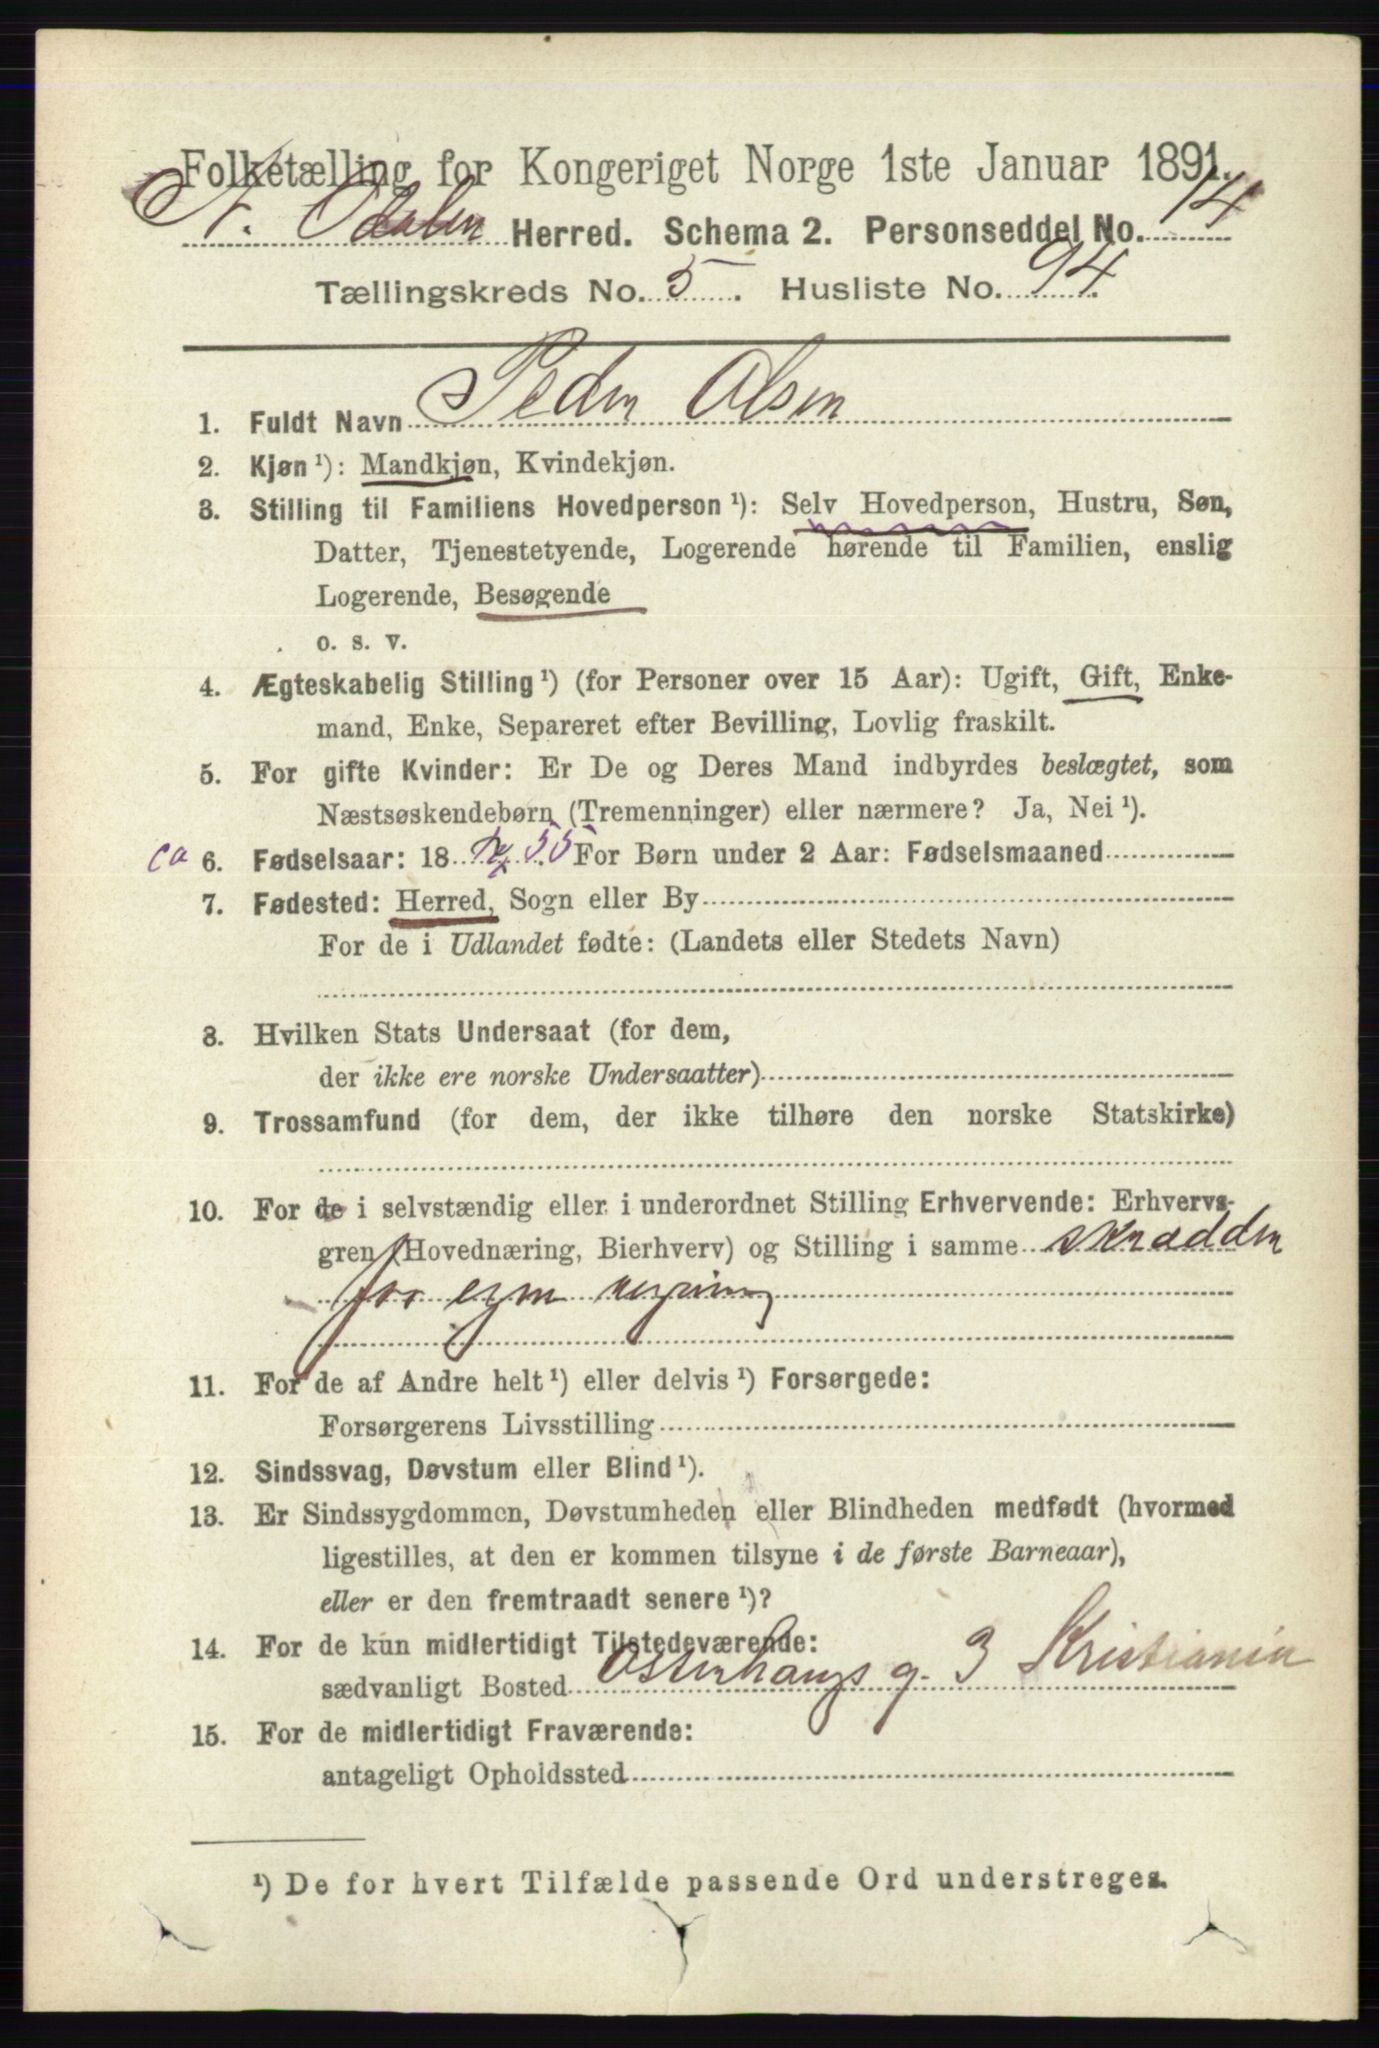 Folketælling for Kongeriget Norge 1ste Januar 1891.
N. Odalen Herred. Schema 2. Personseddel No. 14
Tællingskreds No. 5. Husliste No. 94.
1. Fuldt Navn Peder Olsen
2. Kjøn ¹): Mandkjøn, Kvindekjøn.
3. Stilling til Familiens Hovedperson ¹): Selv Hovedperson, Hustru, Søn,
Datter, Tjenestetyende, Logerende hørende til Familien, enslig
Logerende, Besøgende
o. s. v.
4. Ægteskabelig Stilling ¹) (for Personer over 15 Aar): Ugift, Gift, Enke-
mand, Enke, Separeret efter Bevilling, Lovlig fraskilt.
5. For gifte Kvinder: Er De og Deres Mand indbyrdes beslægtet, som
Næstsøskendebørn (Tremenninger) eller nærmere? Ja, Nei ¹).
ca 6. Fødselsaar: 18 55 For Børn under 2 Aar: Fødselsmaaned
7. Fødested: Herred, Sogn eller By
For de i Udlandet fødte: (Landets eller Stedets Navn)
8. Hvilken Stats Undersaat (for dem,
der ikke ere norske Undersaatter)
9. Trossamfund (for dem, der ikke tilhøre den norske Statskirke)
10. For de i selvstændig eller i underordnet Stilling Erhvervende: Erhvervs-
gren (Hovednæring, Bierhverv) og Stilling i samme skrædder
for egen regning
11. For de af Andre helt ¹) eller delvis ¹) Forsørgede:
Forsørgerens Livsstilling
12. Sindssvag, Døvstum eller Blind ¹).
13. Er Sindssygdommen, Døvstumheden eller Blindheden medfødt (hvormed
ligestilles, at den er kommen tilsyne i de første Barneaar),
eller er den fremtraadt senere ¹)?
14. For de kun midlertidigt Tilstedeværende:
sædvanligt Bosted Osterhaugs g. 3 Kristiania
15. For de midlertidigt Fraværende:
antageligt Opholdssted
¹) De for hvert Tilfælde passende Ord understreges.